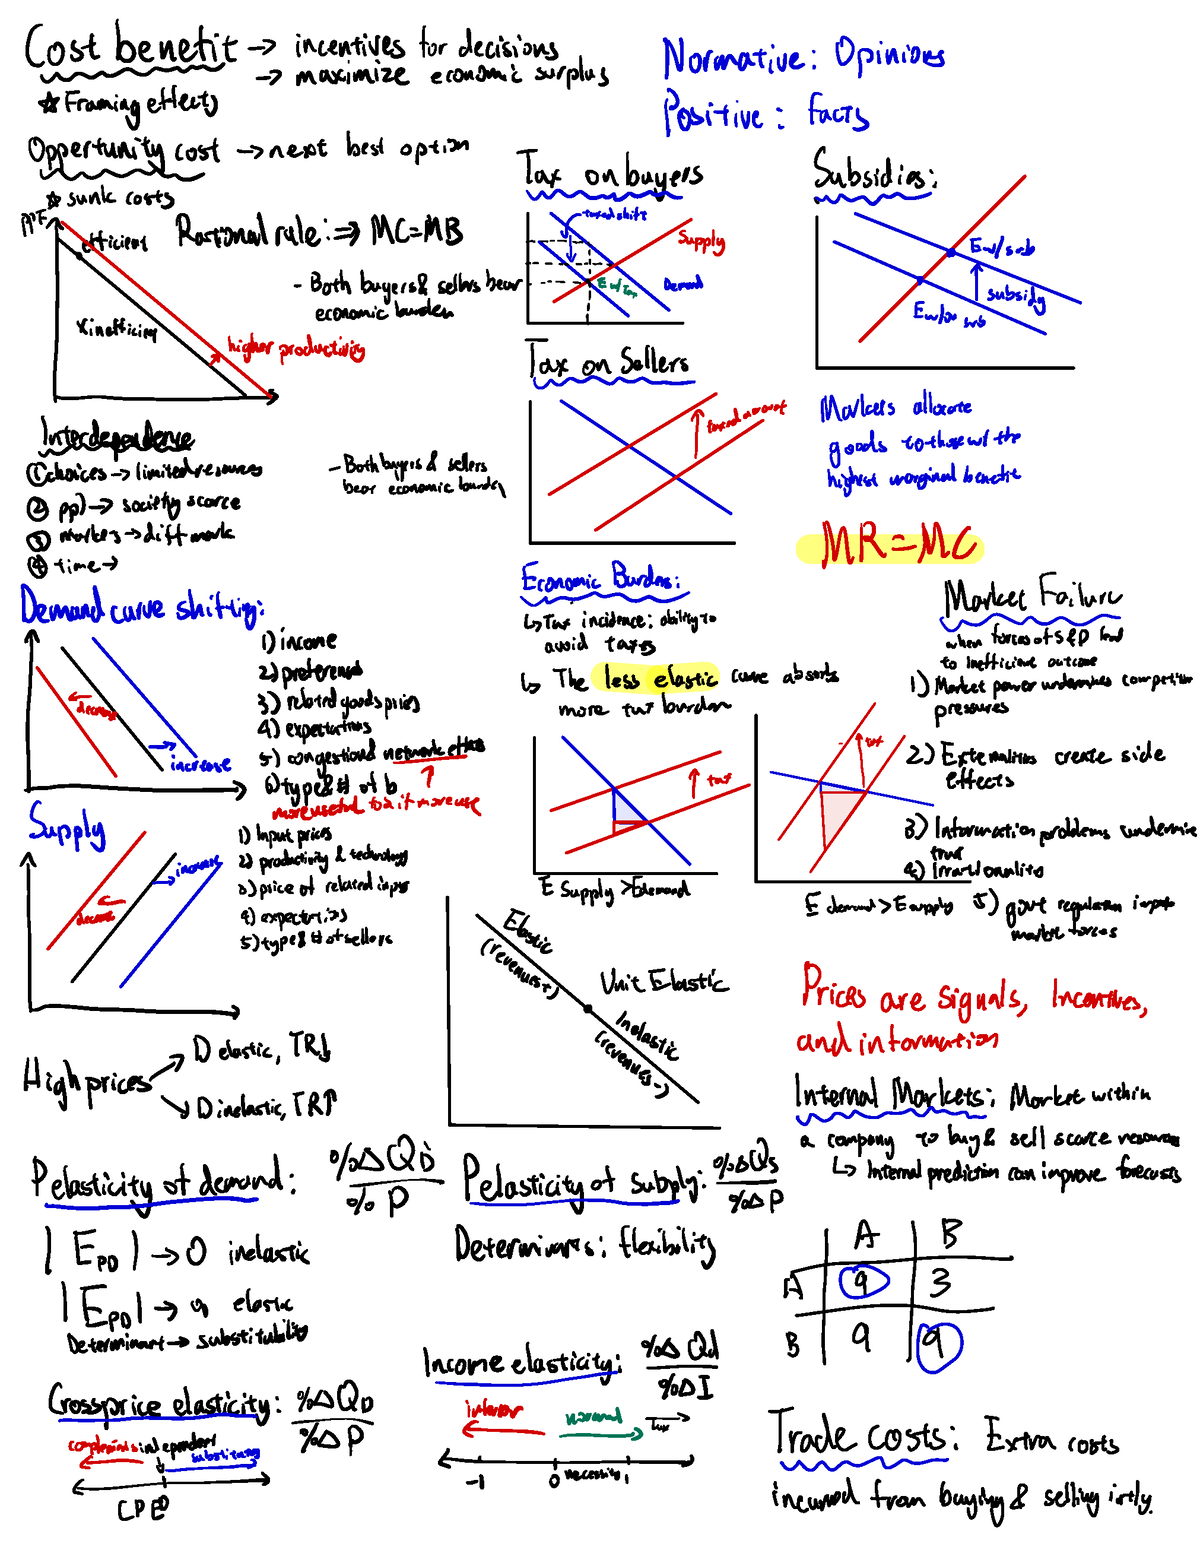 Cost benefit → incentives for decisions
→ maximize economic surplus
☆ Framing effects
Oppertunity cost → next best option
☆ sunk costs
PPF
efficient
x inefficient
higher productivity
Rational rule: ⇒ MC=MB
- Both buyers & sellers bear
economic burden
Normative: Opinions
Positive: facts
Tax on buyers
taxed shift
Supply
E w/ Tax
Demand
Subsidies:
E w/ sub
subsidy
E w/o sub
Tax on Sellers
taxed amount
- Both buyers & sellers
bear economic burden
Markets allocate
goods to those w/ the
highest marginal benefit
MR=MC
Interdependence
① choices → limited resources
② ppl → society scarce
③ markets → diff mark
④ time →
Demand curve shifting:
decrease
increase
1) income
2) preferences
3) related goods prices
4) expectations
5) congestion & network effects
6) type & # of b
more useful to u if more use
Supply
decrease
increase
1) Input prices
2) productivity & technology
3) price of related inputs
4) expectations
5) type & # of sellers
Economic Burden:
↳ Tax incidence: ability to
avoid taxes
↳ The less elastic curve absorbs
more tax burden
tax
E Supply > E demand
tax
E demand > E supply
Market Failure
when forces of S & D lead
to inefficient outcome
1) Market power undermines competitive
pressures
2) Externalities create side
effects
3) Information problems undermine
trust
4) Irrationality
5) govt regulation impede
market forces
Elastic
(revenues +)
Unit Elastic
Inelastic
(revenues -)
High prices
D elastic, TR↓
D inelastic, TR↑
Prices are signals, Incentives,
and information
Internal Markets: Market within
a company to buy & sell scarce resources
↳ Internal prediction can improve forecasts
P elasticity of demand: %ΔQD / % P
|EPD| → 0 inelastic
|EPD| → ∞ elastic
Determinant → substitutability
P elasticity of supply: %ΔQs / %ΔP
Determinants: flexibility
A B
A 9 3
B 9 9
Crossprice elasticity: %ΔQD / %ΔP
complements independent substitutes
0
CPE
Income elasticity: %ΔQd / %ΔI
inferior normal Lux
-1 0 necessity 1
Trade costs: Extra costs
incurred from buying & selling